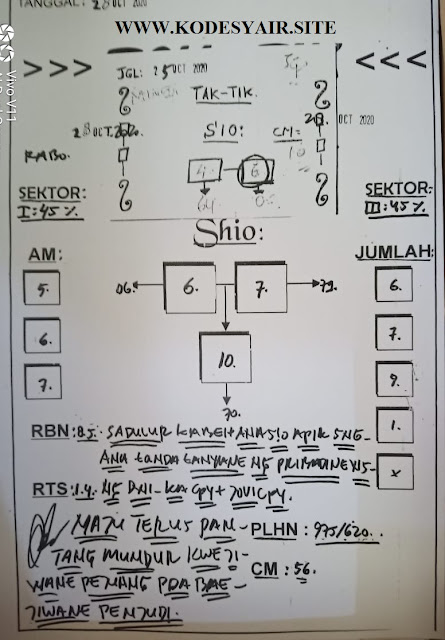 TANGGAL: 28 OCT 2020
WWW.KODESYAIR.SITE
>>> <<<
JGL: 25 OCT 2020
TAK-TIK.
28 OCT. 2020. 28 OCT 2020
SIO: CM=
RABO. 10
4. 6
64
SEKTOR: SEKTOR:
I:45% III:45%
Shio:
AM: JUMLAH:
5. 06. 6. 7. 79. 6.
6. 7.
10.
7. 9.
70.
1.
RBN: 8.5. SADULUR KABEH+ANA SIO APIK SNG-
ANA TANDA TANYANE NG PRIBADINE
x
RTS: 1.4. NG DNI-KA CPY+JOVICPY.
MAJU TERUS PAN- PLHN : 975/620..
TANG MUNDUR KWEJI-
CM : 56.
WANE PEMANG PDA BAE-
JIWANE PENJUDI.
Vivo V11